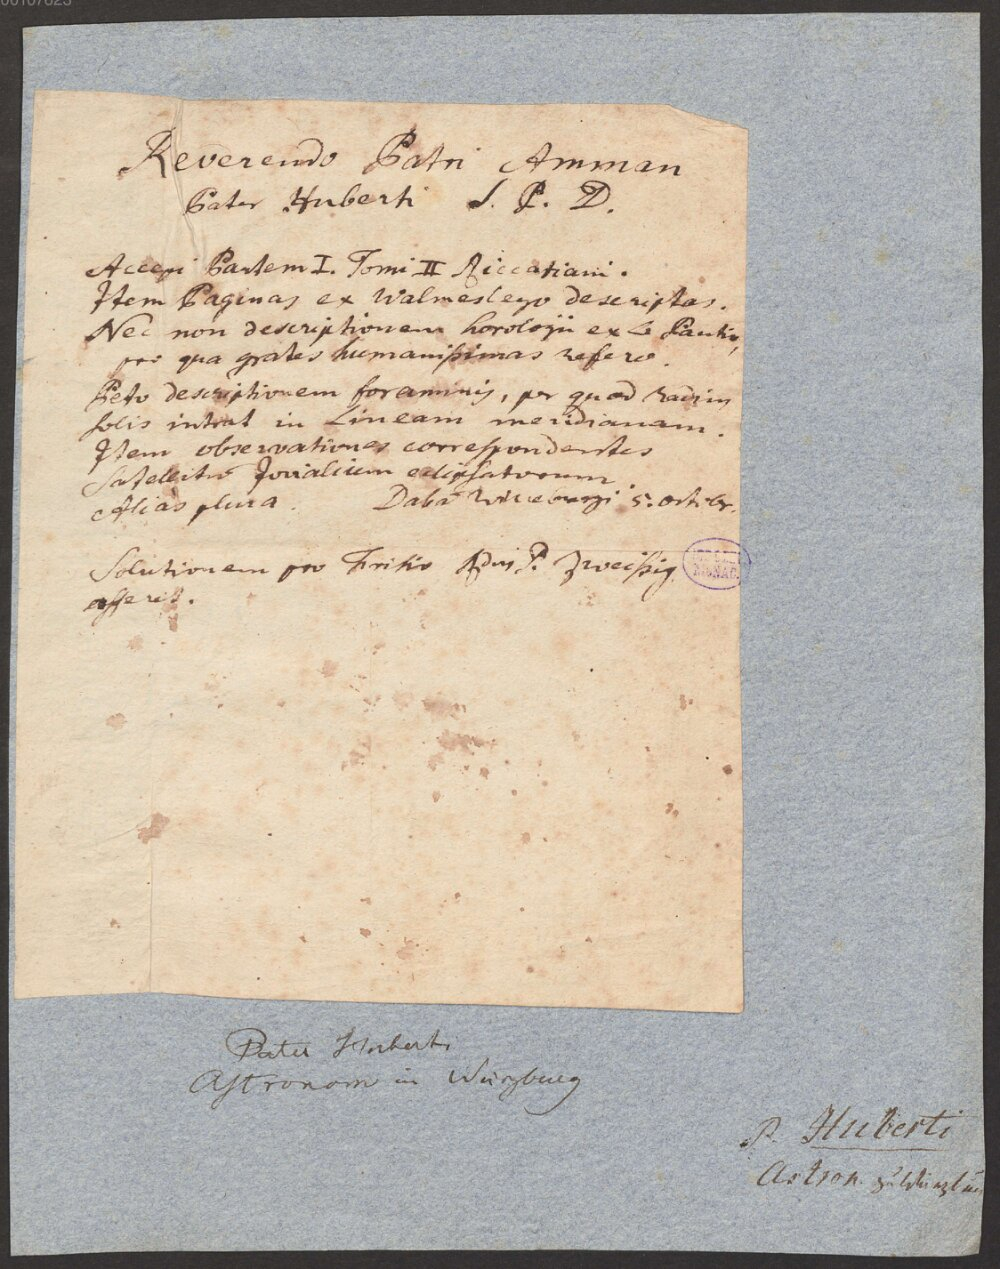 00107623
Reverendo Patri Amman
Pater Huberti S. P. D.
Accepi Partem I. Tomi II Riccatiani.
Item Paginas ex Walmeslego descriptas.
Nec non descriptionem horologii ex Le Pautio,
pro qua grates humanissimas refero.
Peto descriptionem foraminis, per quod radius
solis intrat in Lineam meridianam.
Item observationes correspondentes
Satellitum Jovialium eclipsatorum.
Alias plura. Dabam Wirceburgi 5. octobr.
Solutionem pro Frisio P. Zweissig
afferet.
MONAC.
Pater Huberti
Astronom in Würzburg
P. Huberti
Astron.